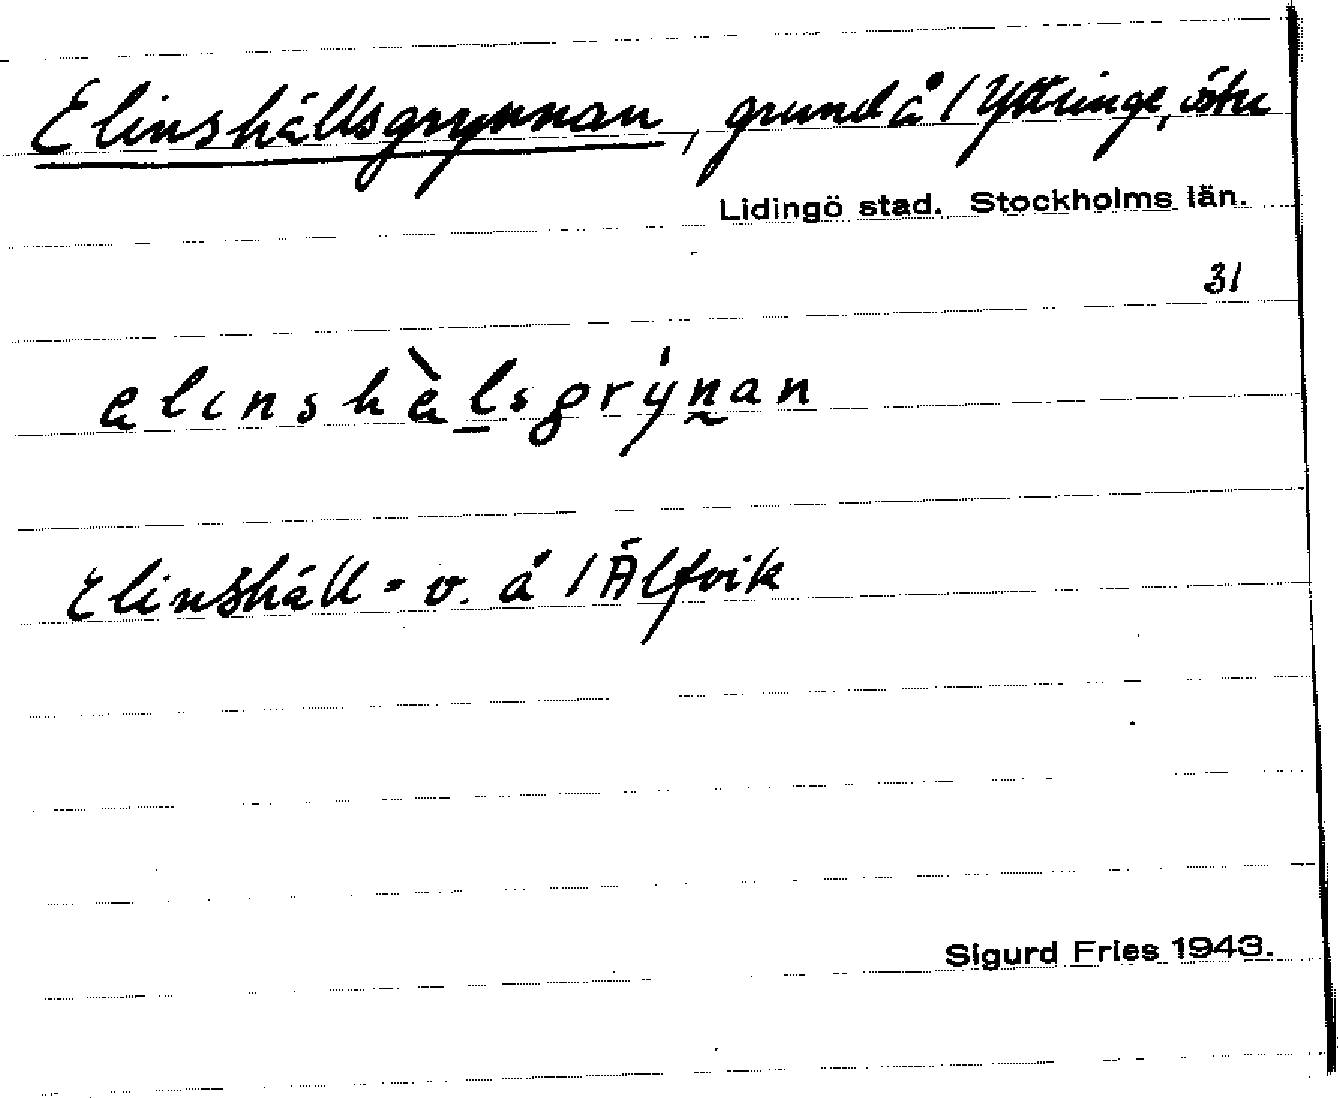 Elinshällsgrynnan, grund å / Yttringe, östr
Lidingö stad. Stockholms län.
31
elinshàlsgrýnan
Elinshäll = v. å / Älfvik
Sigurd Fries 1943.